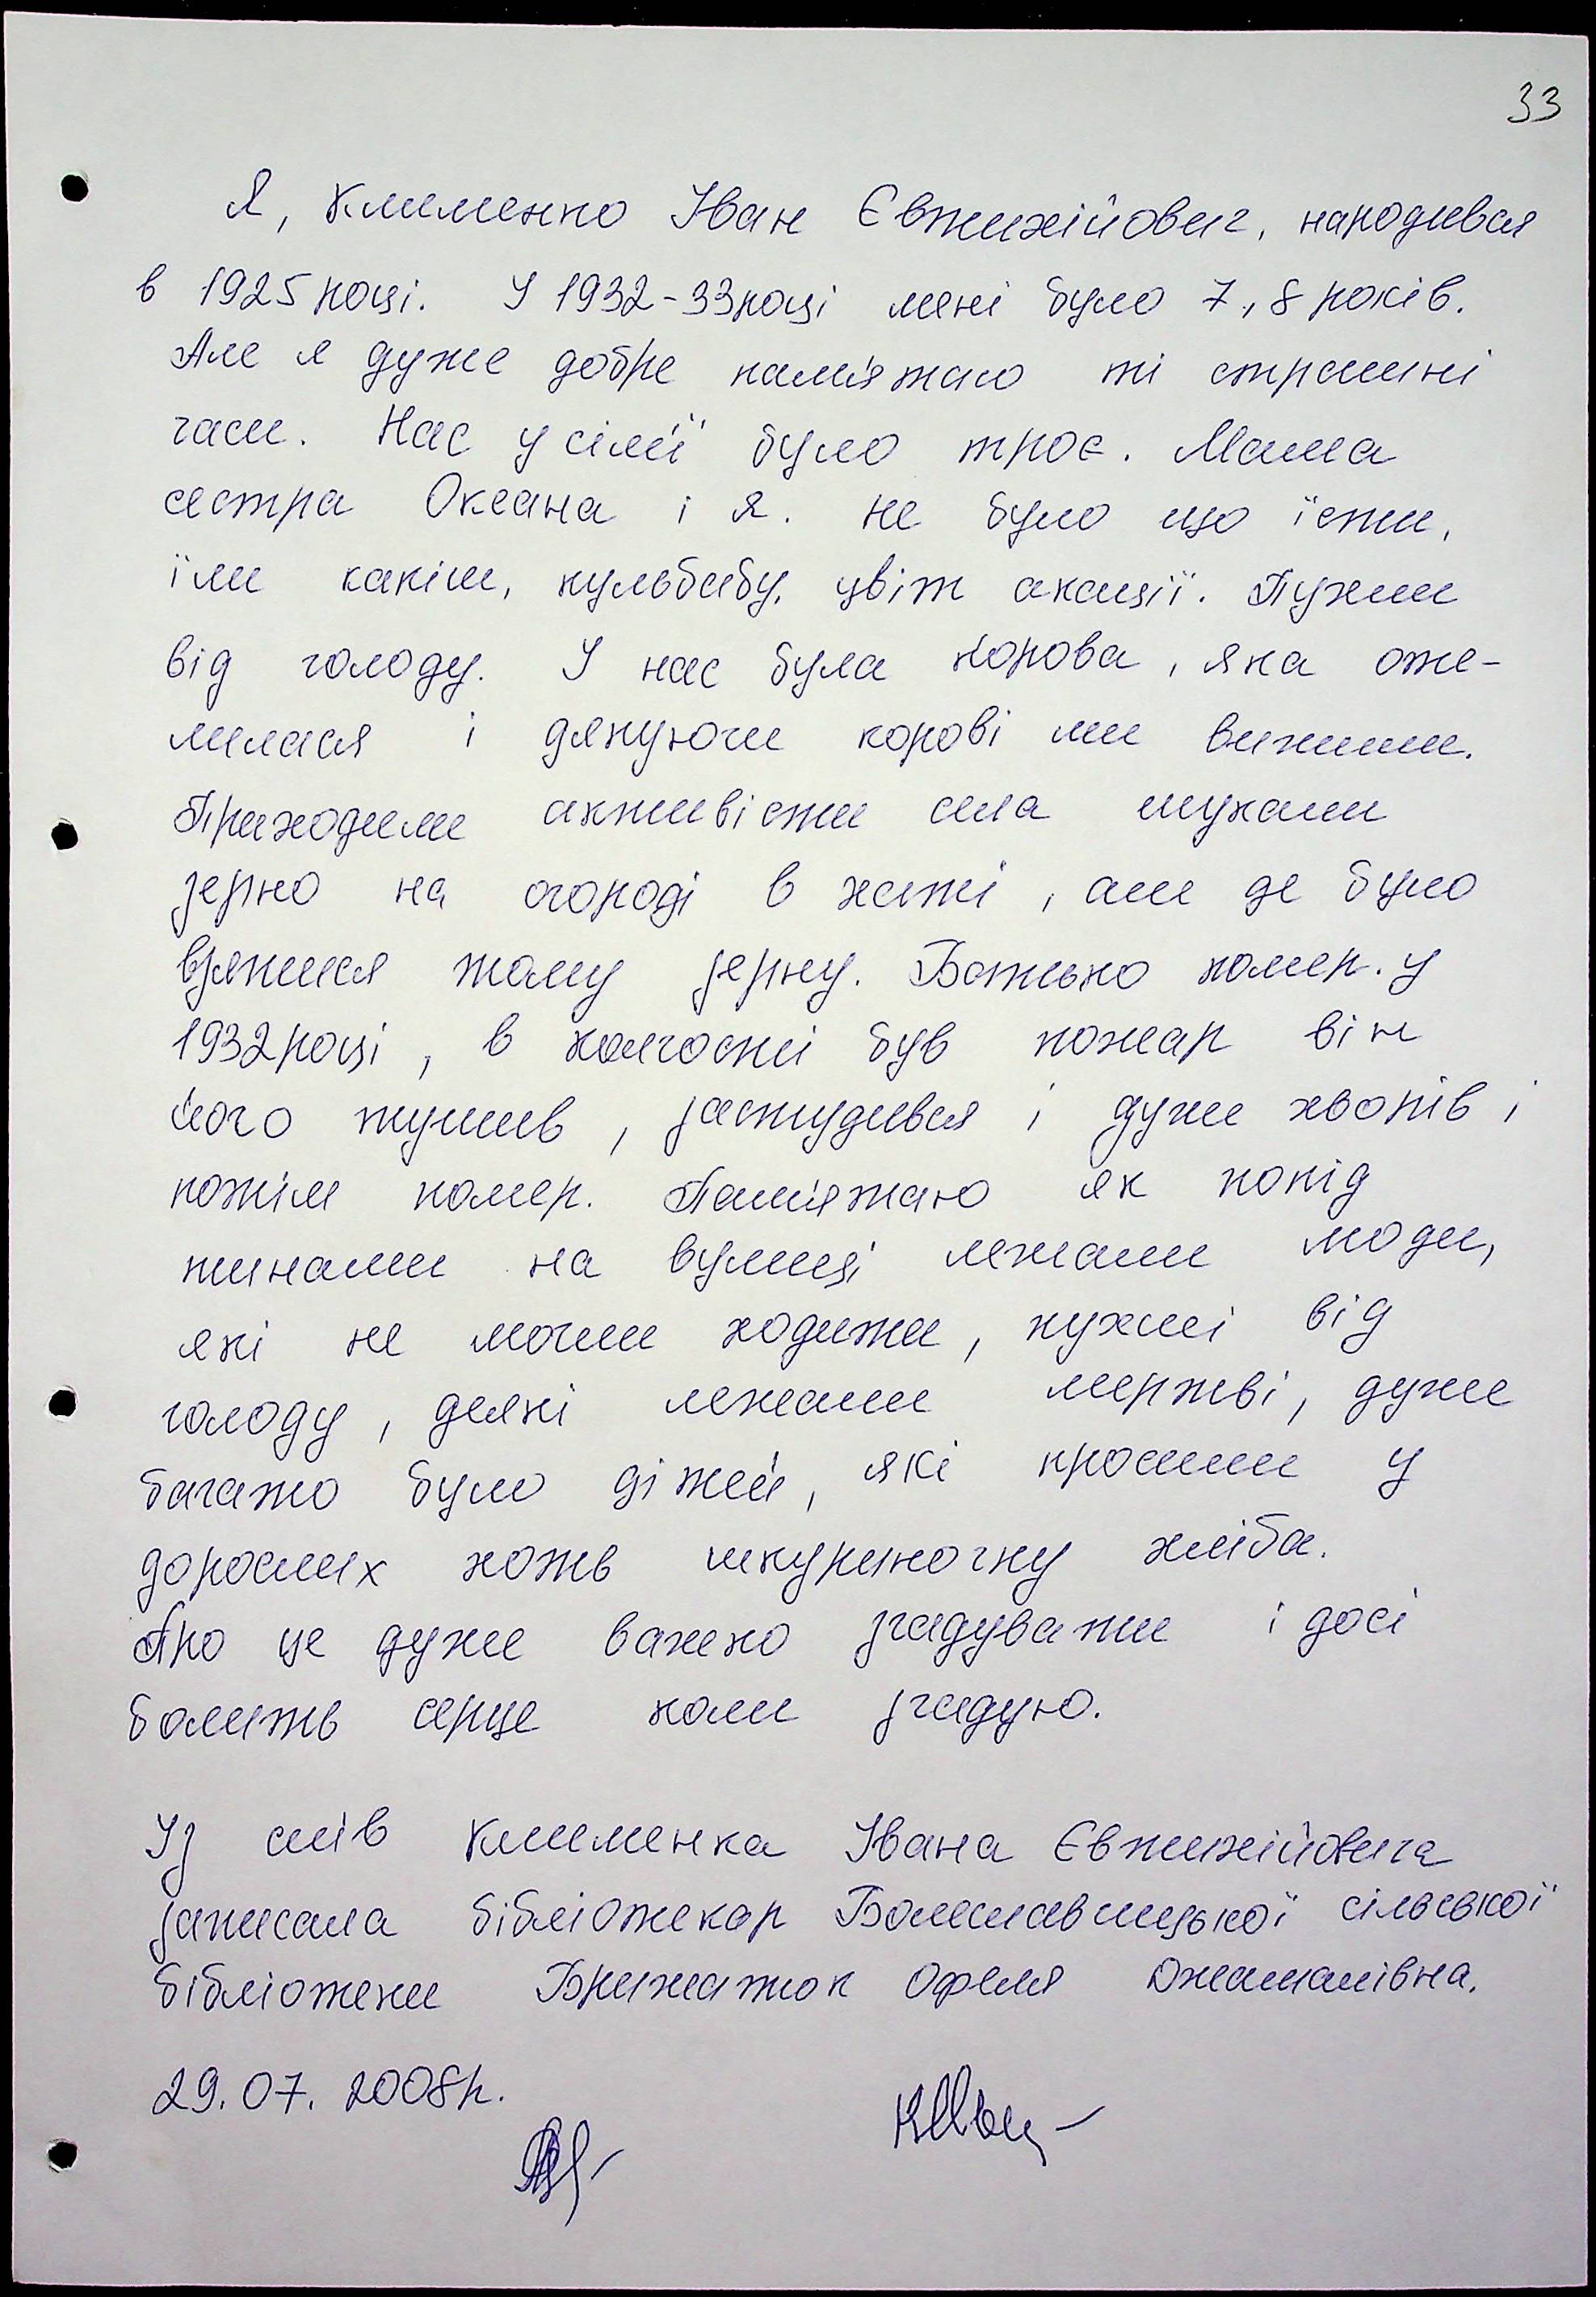 33
Я, Клименко Іван Євтихійович, народився
в 1925 році. У 1932-33 році мені було 7, 8 років.
Але я дуже добре пам'ятаю ті страшні
часи. Нас у сім'ї було троє. Мама
сестра Оксана і я. Не було що їсти,
їли качіти, кульбабу, цвіт акації. Пухли
від голоду. У нас була корова, яка оте-
лилася і дякуючи корові ми вижили.
Приходили активісти села шукали
зерно на огороді в хаті, але де було
взятися тому зерну. Батько помер. у
1932 році, в колгоспі був пожар він
його тушив, застудився і дуже хворів і
потім помер. Пам'ятаю як попід
тинами на вулиці лежали люди,
які не могли ходити, пухлі від
голоду, деякі лежали мертві, дуже
багато було дітей, які просили у
дорослих хоть шкуриночку хліба.
Про це дуже важко згадувати і досі
болить серце коли згадую.
Із слів Клименка Івана Євтихійовича
записала бібліотекар Болеславчицької сільської
бібліотеки Брижатюк Офеля Джамалівна.
29.07.2008р.